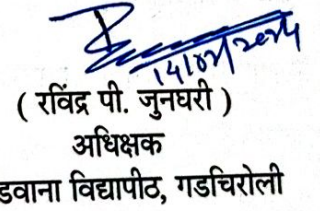 14/02/2024
( रविंद्र पी. जुनघरी )
अधिक्षक
डवाना विद्यापीठ, गडचिरोली